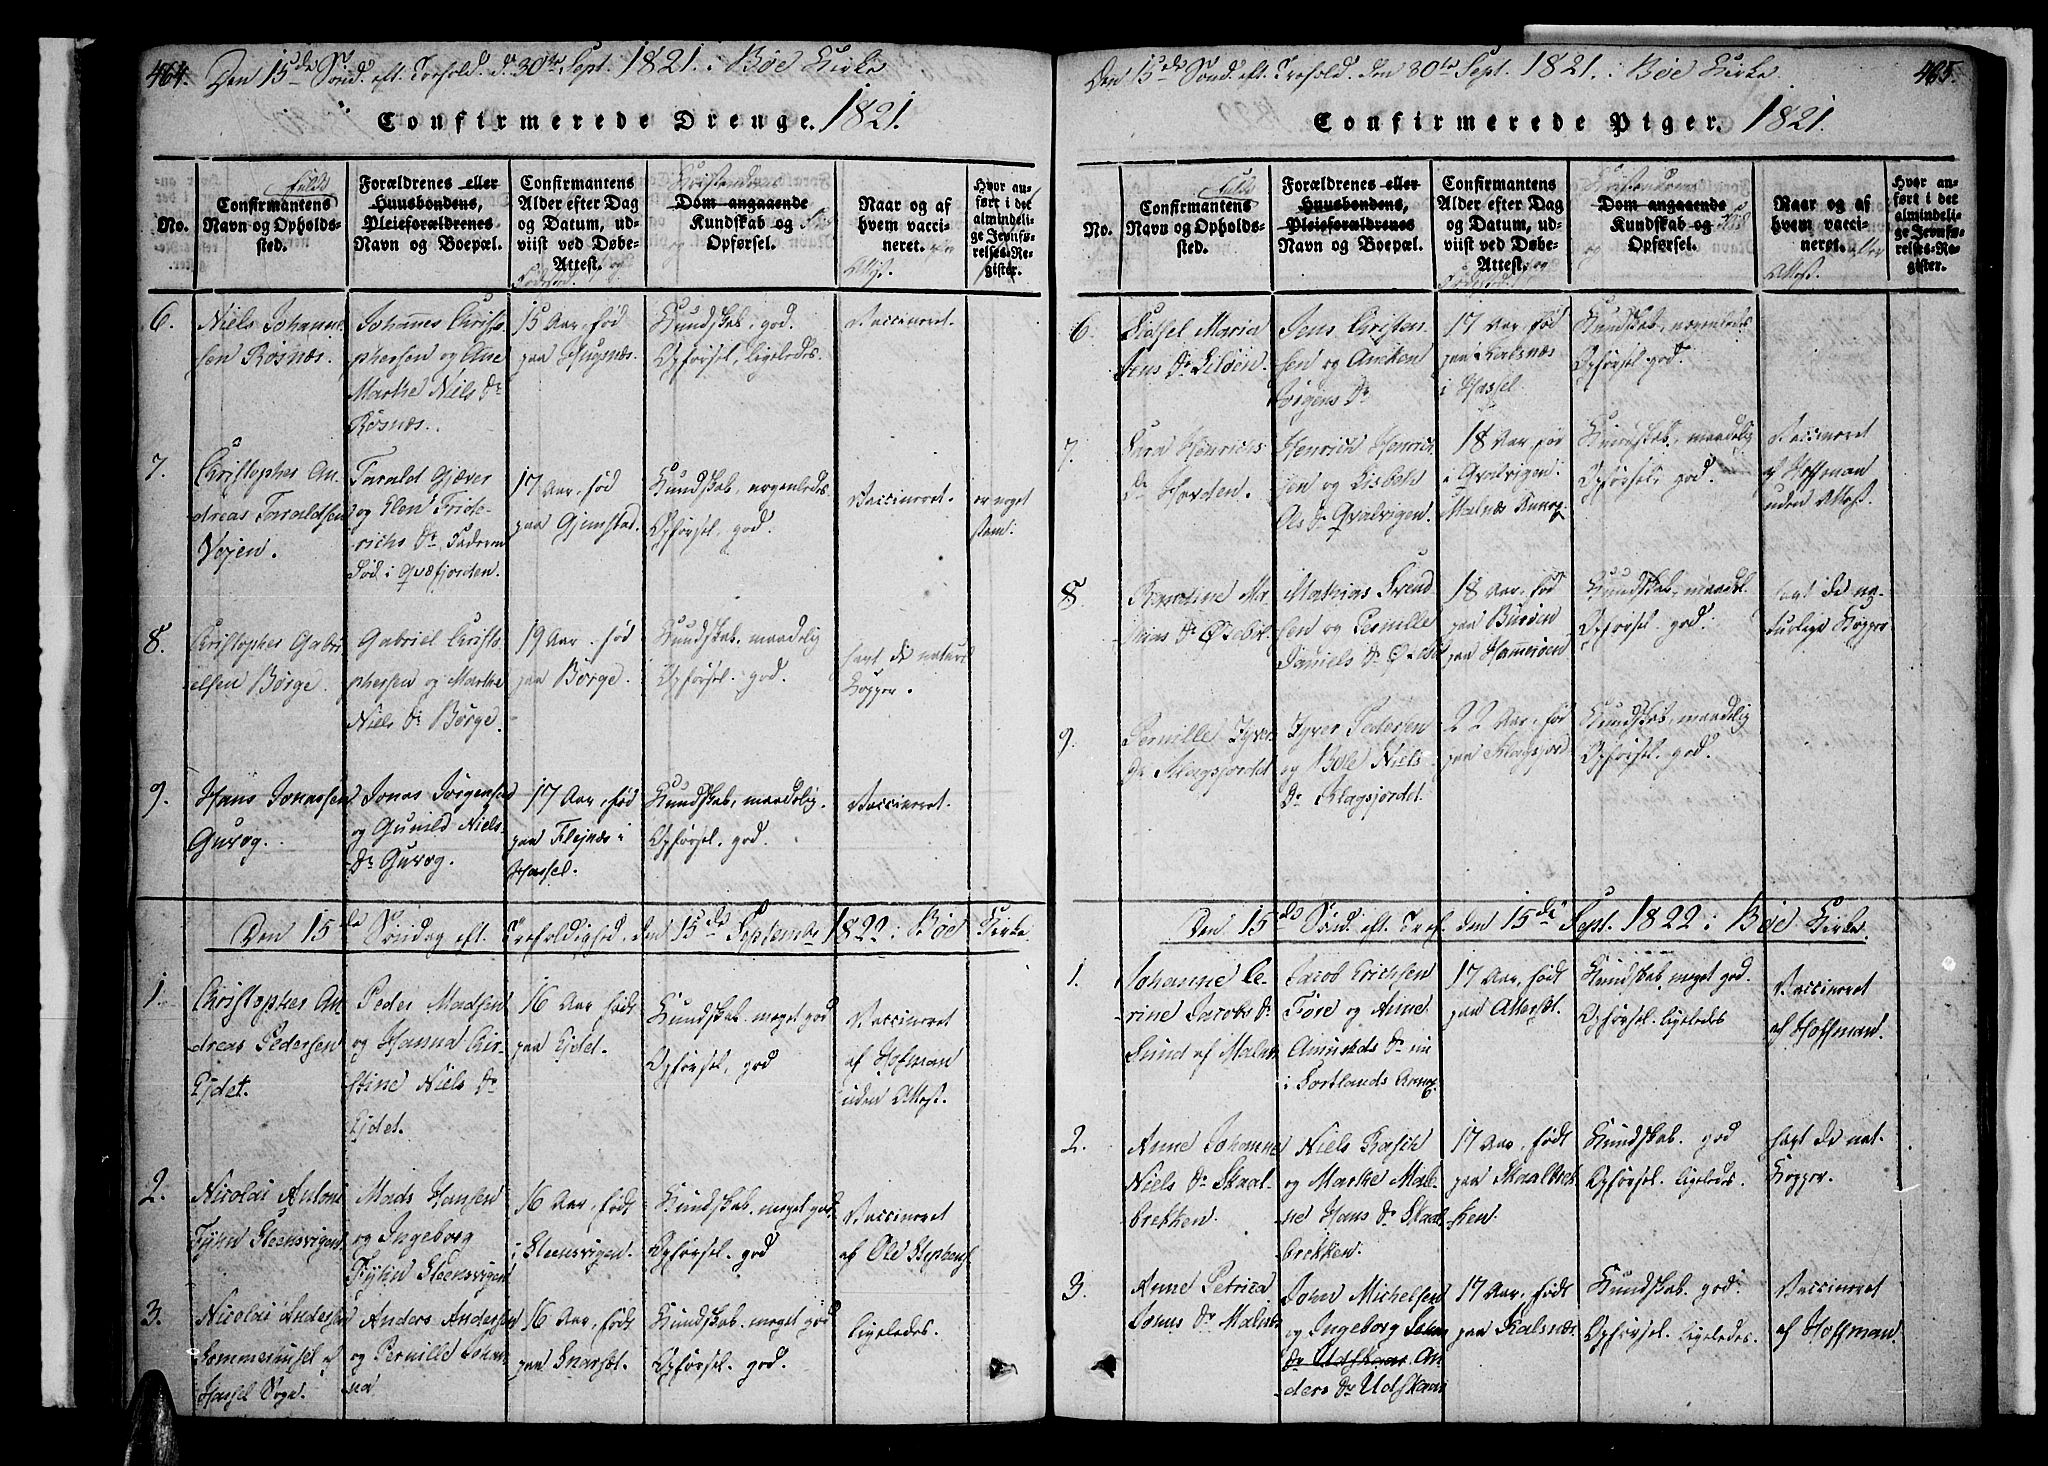 464.
Den 15de Sønd. eft. Trefold. d. 30te Sept. 1821 i Bøe Kirke
Confirmerede Drenge. 1821.
No.
Fulde
Confirmantens
Navn og Opholds-
sted.
Forældrenes eller
Huusbondens,
Pleieforældrenes
Navn og Boepæl.
Confirmantens
Alder efter Dag
og Datum, ud-
viist ved Døbe-
Attest.
Fødested.
Christendoms
Dom angaaende
Kundskab og
Opførsel.
Naar og af
hvem vacci-
neret.
Attest.
Hvor an-
ført i det
almindeli-
ge Jevnfø-
relses-Re-
gister.
6.
Niels Johann-
sen Røsnæs.
Johannes Christo-
phersen og Ane
Marthe Niels Dr
Røsnæs.
15 Aar, fød
paa
Kundskab, god.
Opførsel, ligeledes.
Vaccineret.
7.
Christopher An-
dreas Taraldsen
Vojen.
Tarald Gjæver
og Elen Fride-
richs Dr. Faderen
død i Qvæfjorden.
17 Aar, fød
paa Gimstad.
Kundskab, nogenledes.
Opførsel, god.
Vaccineret.
er noget
stam:
8.
Christopher Gabri-
elsen Børge.
Gabriel Christo-
phersen og Marthe
Niels Dr Børge.
19 Aar, fød
paa Børge.
Kundskab, maadelig
Opførsel. god.
havt de naturl.
Kopper.
9.
Hans Jonassen
Guvog.
Jonas Jørgensen
og Gunild Niels-
Dr Guvog.
17 Aar, fød
paa Flejnæs i
Hassel.
Kundskab, maadelig.
Opførsel. god.
Vaccineret.
Den 15de Søndag eft. Trefoldighed, den 15de Septembr 1822 i Bøe Kirke
1.
Christopher An-
dreas Pedersen
Ejdet.
Peder Madsen
og Hanna Kir-
stine Niels Dr
Ejdet.
16 Aar, født
paa Ejdet.
Kundskab, meget god
Opførsel, god
Vaccineret
af Hofman
uden Attest.
2.
Nicolai Antoni
Fyhn Steensvigen.
Mads Hansen
og Ingeborg
Fyhn Steensvigen
16 Aar, født
i Steensvigen.
Kundskab, meget god
Opførsel. god
Vaccineret
af Ole Stephens.
3.
Nicolai Andersen
Sommerhusel af
Hassel Sogn.
Anders Andersen
og Pernille Johan-
na
16 Aar, født
paa Snarsæt.
Kundskab, meget god
Opførsel. god.
ligeledes.
465.
Den 15de Sønd. eft. Trefold. den 30te Sept. 1821 i Bøe Kirke
Confirmerede Piger. 1821.
No.
Fulde
Confirmantens
Navn og Opholds-
sted.
Forældrenes eller
Huusbondens,
Pleieforældrenes
Navn og Boepæl.
Confirmantens
Alder efter Dag
og Datum, ud-
viist ved Døbe-
Attest.
Fødested.
Christendoms
Dom angaaende
Kundskab og
Opførsel.
Naar og af
hvem vacci-
neret.
Attest.
Hvor an-
ført i det
almindeli-
ge Jevnfø-
relses-Re-
gister.
6.
Maria
Jens Dr
Jens Christen-
sen og Anniken
Jørgens Dr
17 Aar, fød
paa Kalsnæs
i Hassel.
Kundskab, nogenledes
Opførsel god.
7.
Sara Henrichs
Dr Horden.
Henrich Henrich-
sen og Lisbeth
Ols Dr Qvalvigen.
18 Aar, fød
i Qvalvigen i
Malnæs Annex.
Kundskab, maadelig
Opførsel, god
Vaccineret
af Hoffman
uden Attest.
8.
Mathias Svend-
sen og Pernille
Daniels Dr
18 Aar, fød
paa
paa Hamerøen
Kundskab, maadel.
Opførsel, god.
havt de na-
turlige Kopper
9.
Pernille Iver-
Dr Klagsjordet
Iver Pedersen
og Bele Niels-
Dr Klagsjordet.
22 Aar, fød
paa Klagsjord.
Kundskab, maadelig
Opførsel, god.
Den 15de Sønd. eft. Tref. den 15de Sept. 1822 i Bøe Kirke.
1.
Johanne Pe-
rine Jacobs Dr
Sund af Malnæs
Jacob Erichsen
Føre og Anne
Amunds Dr nu
i Sortlands Annex.
17 Aar, født
paa
Kundskab, meget god.
Opførsel ligeledes
Vaccineret
af Hoffman.
2.
Anne Johanne
Niels Dr Skaal-
brekken.
Niels Rasch
og Marthe Male-
ne Hans Dr Skaal-
brekken.
17 Aar, født
paa Skaalbrek-
ken.
Kundskab. god
Opførsel. ligeledes.
havt de nat.
Kopper.
3.
Anne Petrica
Johns Dr Malnæs
John Michelsen
og Ingeborg
Dr Udskaar. An-
ders Dr Udskaar
17 Aar, født
paa Kalsnæs.
Kundskab, god
Opførsel. ligeledes.
Vaccineret
af Hoffman.